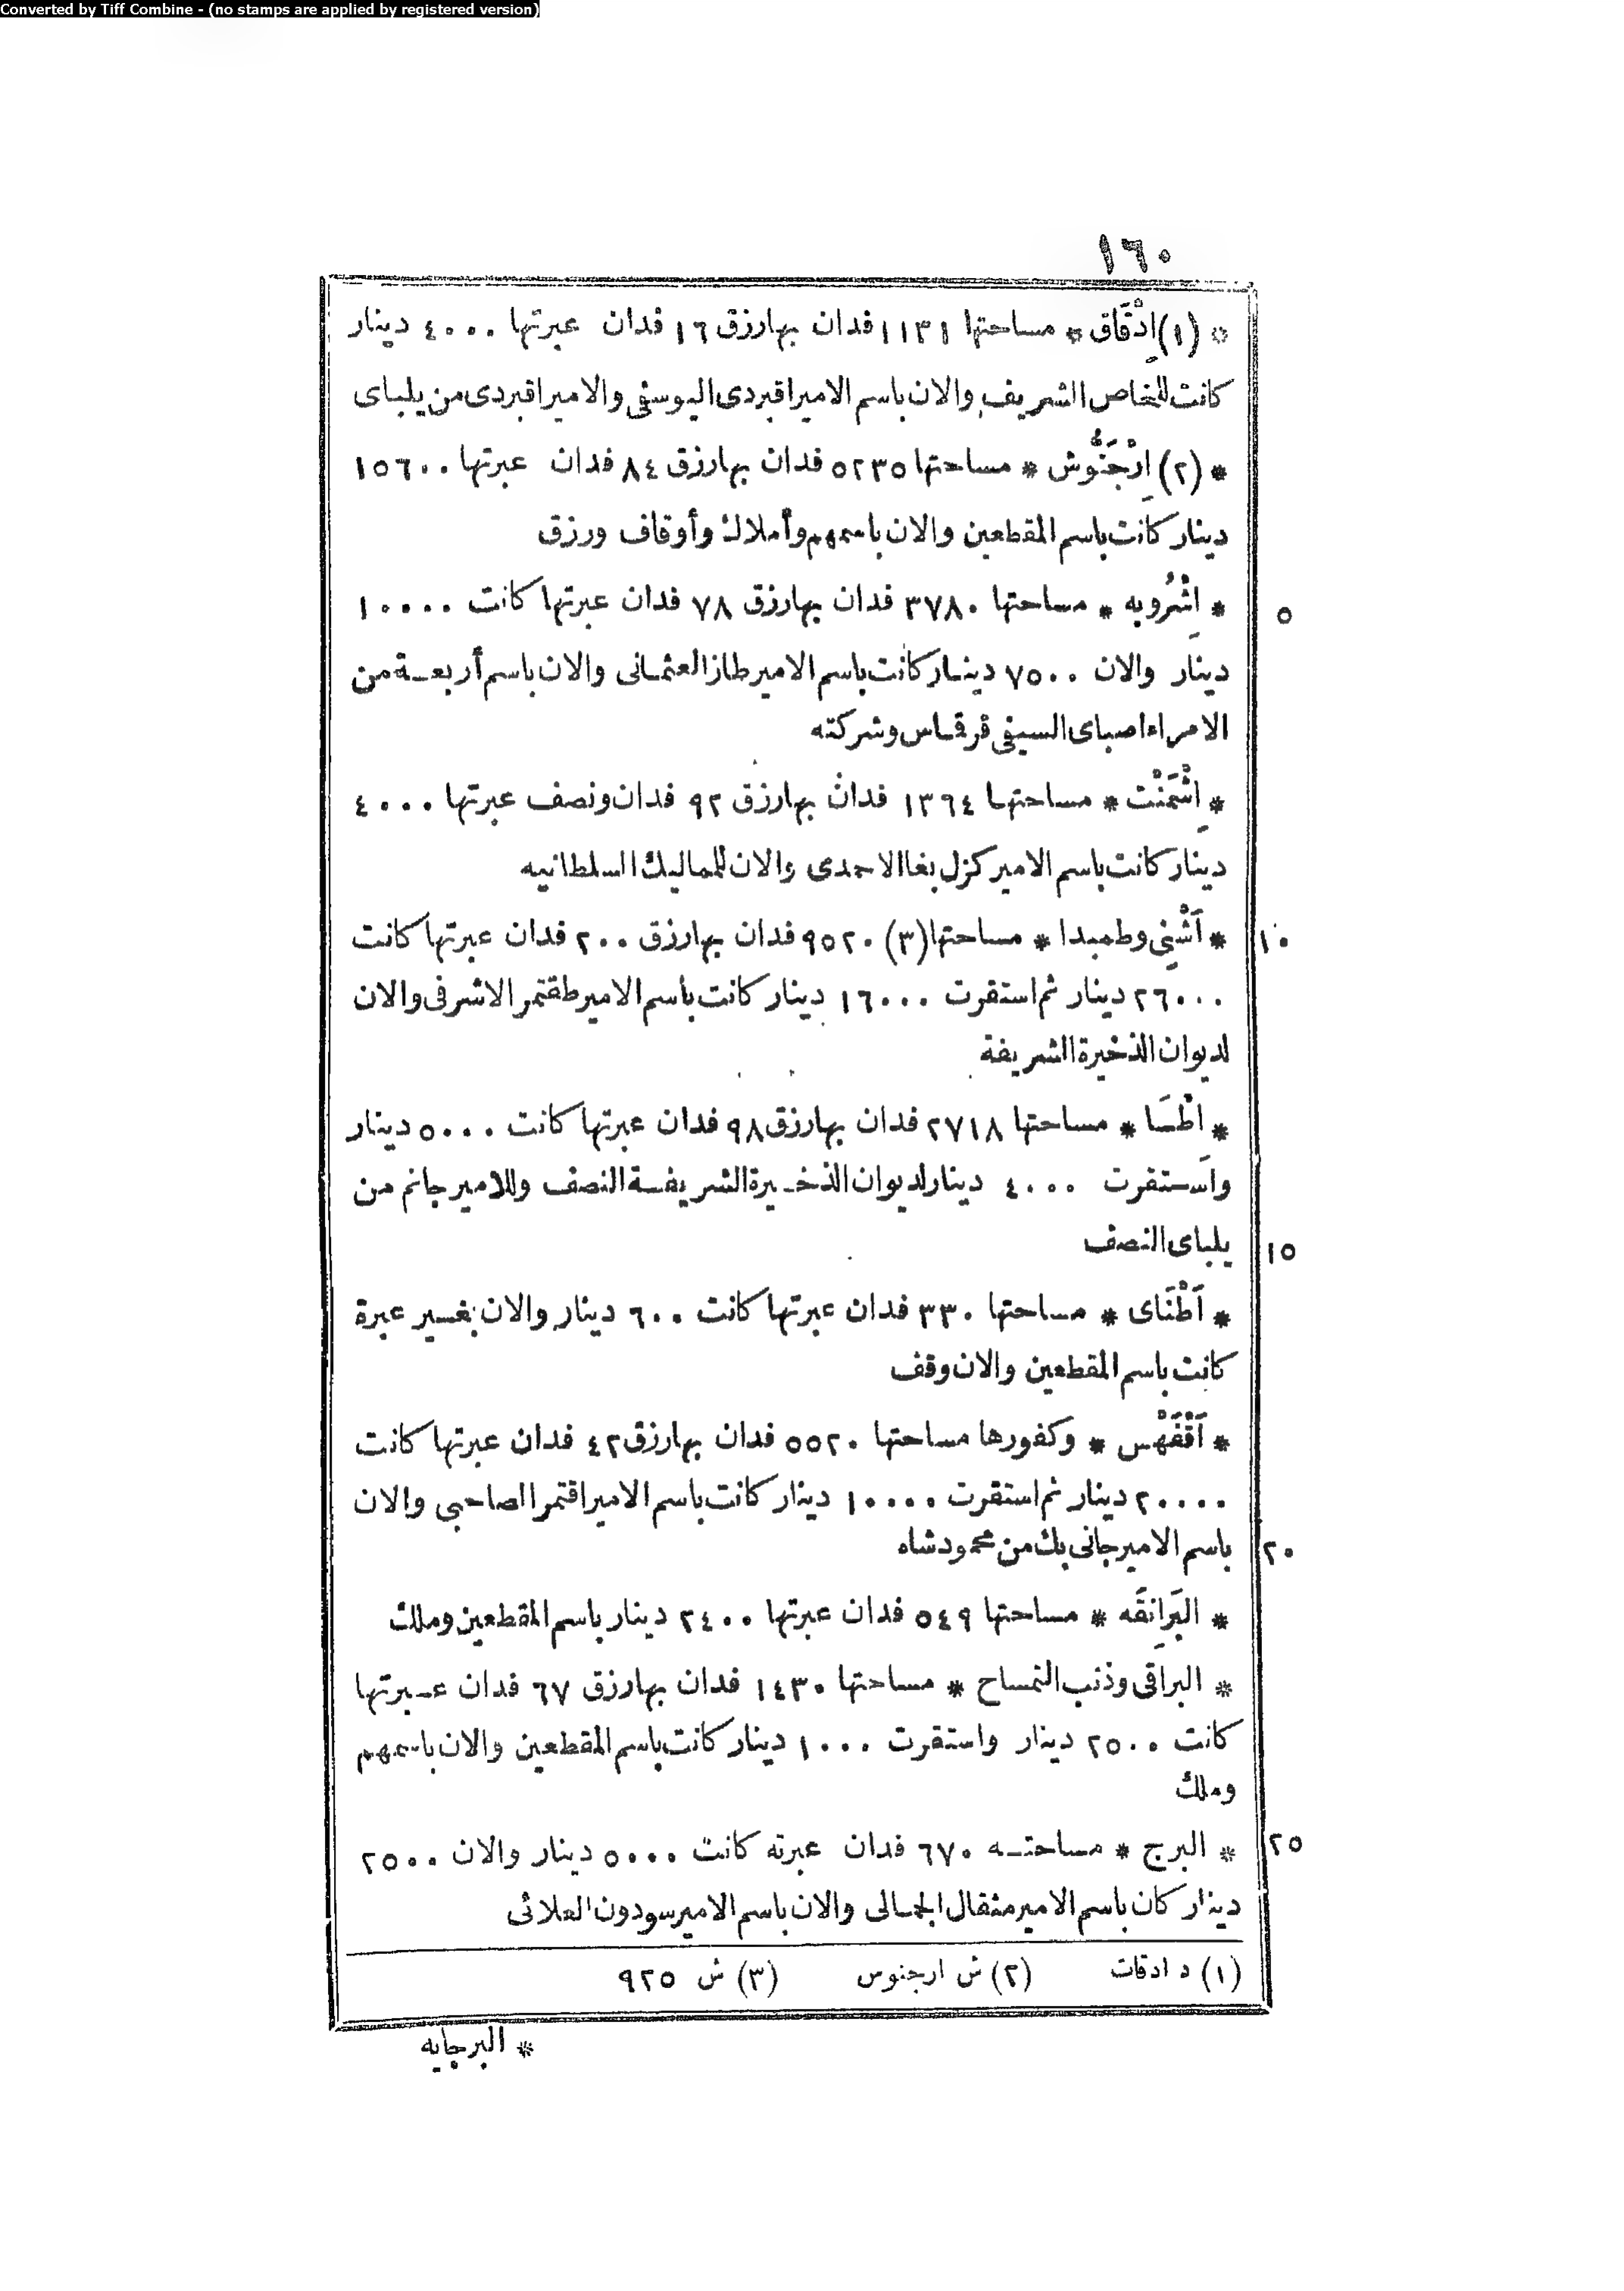 Converted by Tiff Combine - (no stamps are applied by registered version)
١٦٠
* (١) اِدْقَاق * مساحتها ١١٣١ فدان بها رزق ١٦ فدان عبرتها ٤٠٠٠ دينار
كانت للخاص الشريف والان باسم الامير اقبردى اليوسفى والامير اقبردى من يلباى
* (٢) اِرْجَنُّوش * مساحتها ٥٢٣٥ فدان بها رزق ٨٤ فدان عبرتها ١٥٦٠٠
دينار كانت باسم المقطعين والان باسمهم وأملاك وأوقاف ورزق
* اِشْرُوبه * مساحتها ٣٧٨٠ فدان بها رزق ٧٨ فدان عبرتها كانت ١٠٠٠٠
٥
دينار والان ٧٥٠٠ دينار كانت باسم الامير طاز العثمانى والان باسم أربعة من
الامراء اصباى السيفى قرقماس وشركته
* اِشْمَنْت * مساحتها ١٣٩٤ فدان بها رزق ٩٢ فدان ونصف عبرتها ٤٠٠٠
دينار كانت باسم الامير كزل بغا الاحمدى والان للماليك السلطانيه
* اَشْنِى وطمبدا * مساحتها (٣) ٩٥٢٠ فدان بها رزق ٢٠٠ فدان عبرتها كانت
١٠
٢٦٠٠٠ دينار ثم استقرت ١٦٠٠٠ دينار كانت باسم الامير طقتمر الاشرفى والان
لديوان الذخيرة الشريفة
* اطْسَا * مساحتها ٢٧١٨ فدان بها رزق ٩٨ فدان عبرتها كانت ٥٠٠٠ دينار
واستقرت ٤٠٠٠ دينار لديوان الذخيرة الشريفة النصف وللامير جانم من
يلباى النصف
١٥
* اَطْنَاى * مساحتها ٣٣٠ فدان عبرتها كانت ٦٠٠ دينار والان بغير عبرة
كانت باسم المقطعين والان وقف
* اَقْفَهْس * وكفورها مساحتها ٥٥٢٠ فدان بها رزق ٤٢ فدان عبرتها كانت
٢٠٠٠٠ دينار ثم استقرت ١٠٠٠٠ دينار كانت باسم الامير اقتمر الصاحبى والان
باسم الامير جانى بك من محمود شاه
٢٠
* البَرانِقَه * مساحتها ٥٤٩ فدان عبرتها ٢٤٠٠ دينار باسم المقطعين وملك
* البراقى وذنب التمساح * مساحتها ١٤٣٠ فدان بها رزق ٦٧ فدان عبرتها
كانت ٢٥٠٠ دينار واستقرت ١٠٠٠ دينار كانت باسم المقطعين والان باسمهم
وملك
* البرج * مساحته ٦٧٠ فدان عبرته كانت ٥٠٠٠ دينار والان ٢٥٠٠
٢٥
دينار كان باسم الامير مثقال الجمالى والان باسم الامير سودون العلائى
(١) د ادقات (٢) ش ارجنوس (٣) ش ٩٢٥
* البرجايه